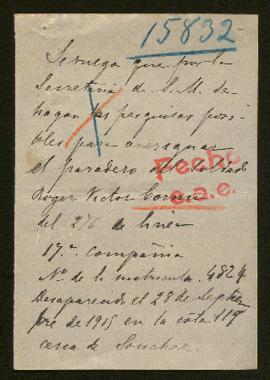 15832
Se ruega que por la
Secretaria de S. M. se
hagan las pesquisas posi
bles para averiguar
el paradero del soldado
Fecho
Roger Victor Cornu
e.a.e.
del 276 de linea
17.a compañia
No. de la matricula. 4824
Desaparecido el 28 de Septiem
bre de 1915 en la cota 119
cerca de Souchez